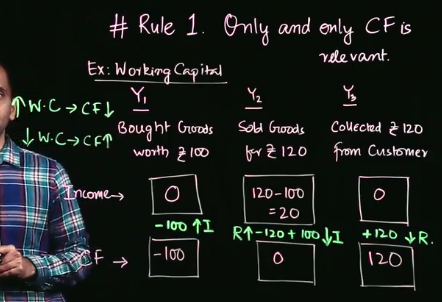 # Rule 1. Only and only CF is
relevant.
Ex: Working Capital
↑ W.C → CF↓
↓ W.C → CF↑
Y₁ Y₂ Y₃
Bought Goods Sold Goods Collected ₹ 120
worth ₹ 100 for ₹ 120 from Customer
Income → 0 120-100 0
= 20
-100 ↑I R↑ -120 + 100 ↓I +120 ↓R.
CF → -100 0 120